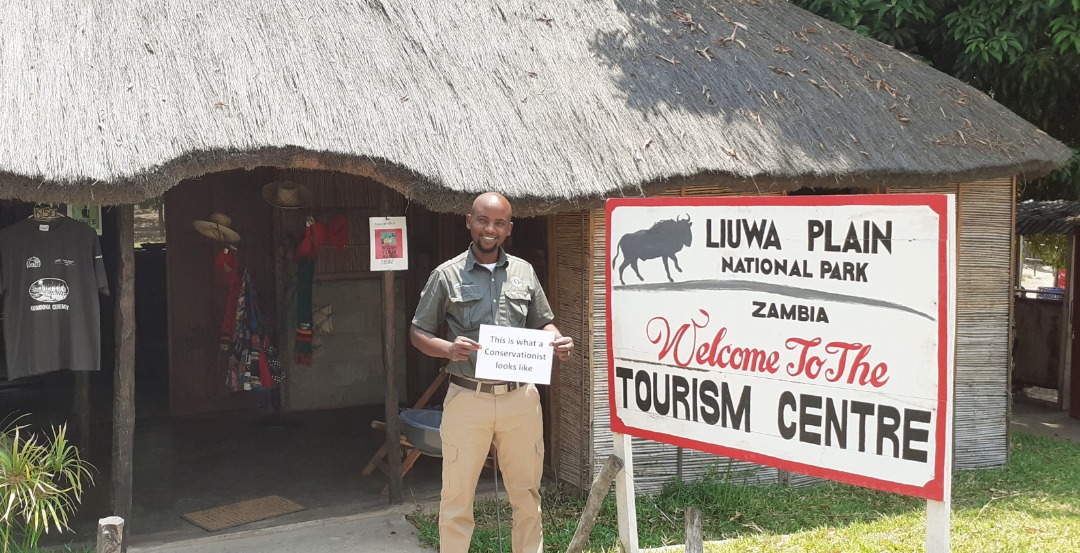 This is what a
Conservationist
looks like
LIUWA PLAIN
NATIONAL PARK
ZAMBIA
Welcome To The
TOURISM CENTRE